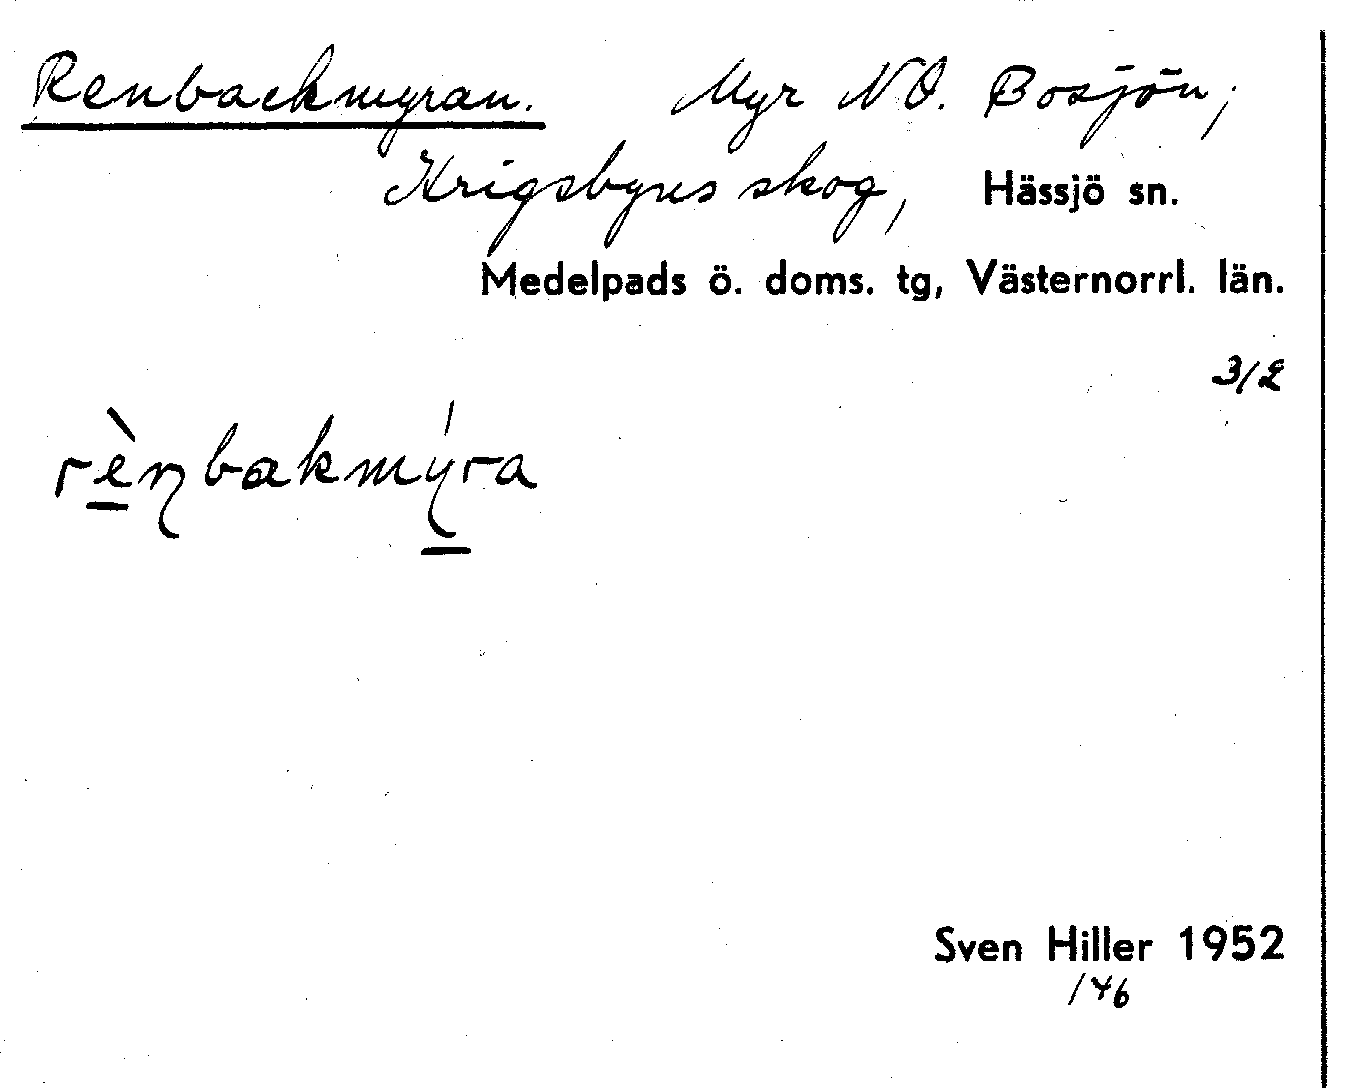 Renbackmyran. Myr NO. Bosjön,
Krigsbyns skog, Hässjö sn.
Medelpads ö. doms. tg, Västernorrl. län.
3/2
rèn̩bakmýra
Sven Hiller 1952
146